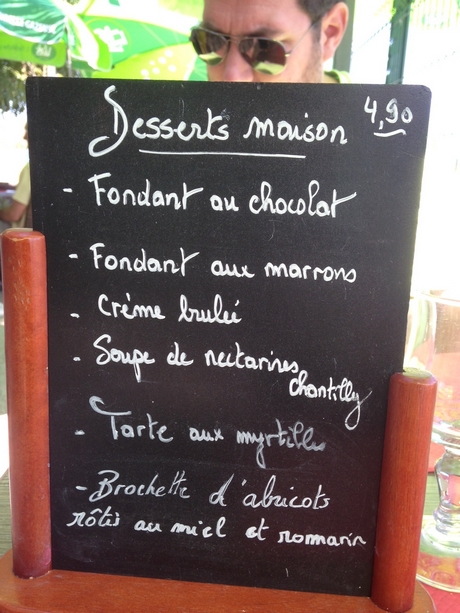 Desserts maison 4,90
- Fondant au chocolat
- Fondant aux marrons
- Créme brulée
- Soupe de nectarines
chantilly
- Tarte aux myrtilles
- Brochette d'abricots
rôtis au miel et romarin